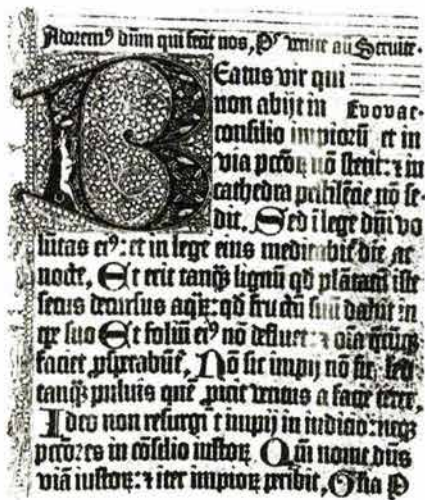 Adorem⁹ dñm qui fecit nos, Ps̄ venite añ Seruite.
Beatus vir qui
non abijt in Euouae.
consilio impioꝝ et in
via pccōꝝ nō stetit: ⁊ in
cathedra pestilētie nō se-
dit, Sed ī lege dñi vo
lūtas ei⁹: et in lege eius meditabit̄ die ac
nocte, Et erit tanqꝫ lignū qd̄ plātatū est
secus decursus aqꝝ: qd̄ fructū suū dabit in
tꝑe suo Et foliū ei⁹ nō defluet: ⁊ oīa
faciet ꝓsperabūt̄, Nō sic impij nō sic, sed
tanqꝫ puluis quē ꝓicit ventus a facie terre,
Ideo non resurgūt impij in iudicio: neqꝫ
pctōres in cōsilio iustoꝝ Qm̄ nouit dñs
viā iustoꝝ: ⁊ iter impioꝝ peribit, Glīa P